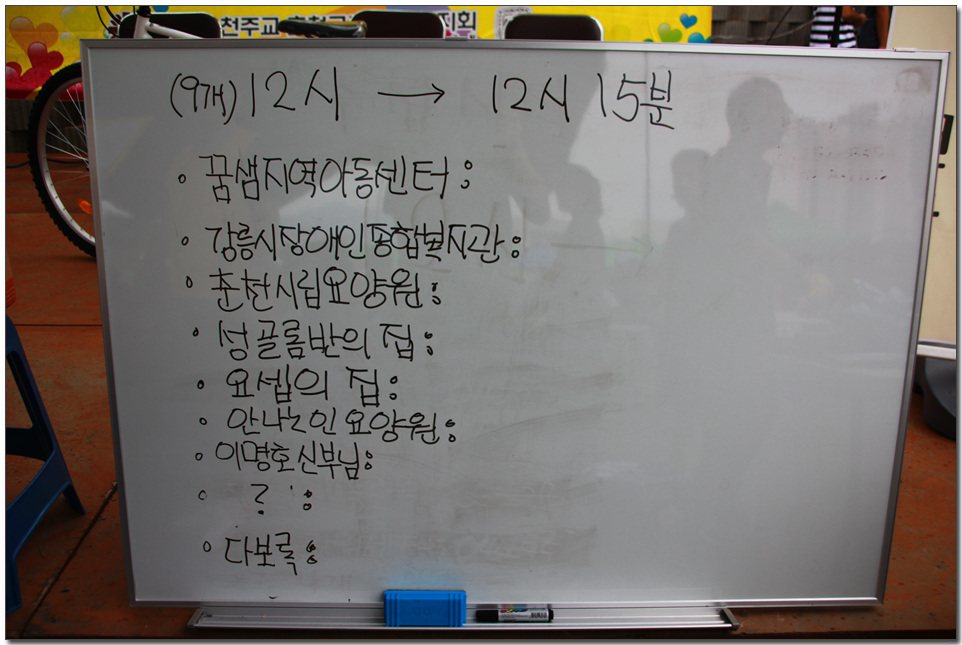 천주교 춘천교
지회
(9개) 12시 → 12시 15분
• 꿈샘지역아동센터 :
• 강릉시장애인종합복지관 :
• 춘천시립요양원 :
• 성골롬반의 집 :
• 요셉의 집 :
• 안나노인요양원 :
• 이명호신부님 :
• ? :
• 다보록 :